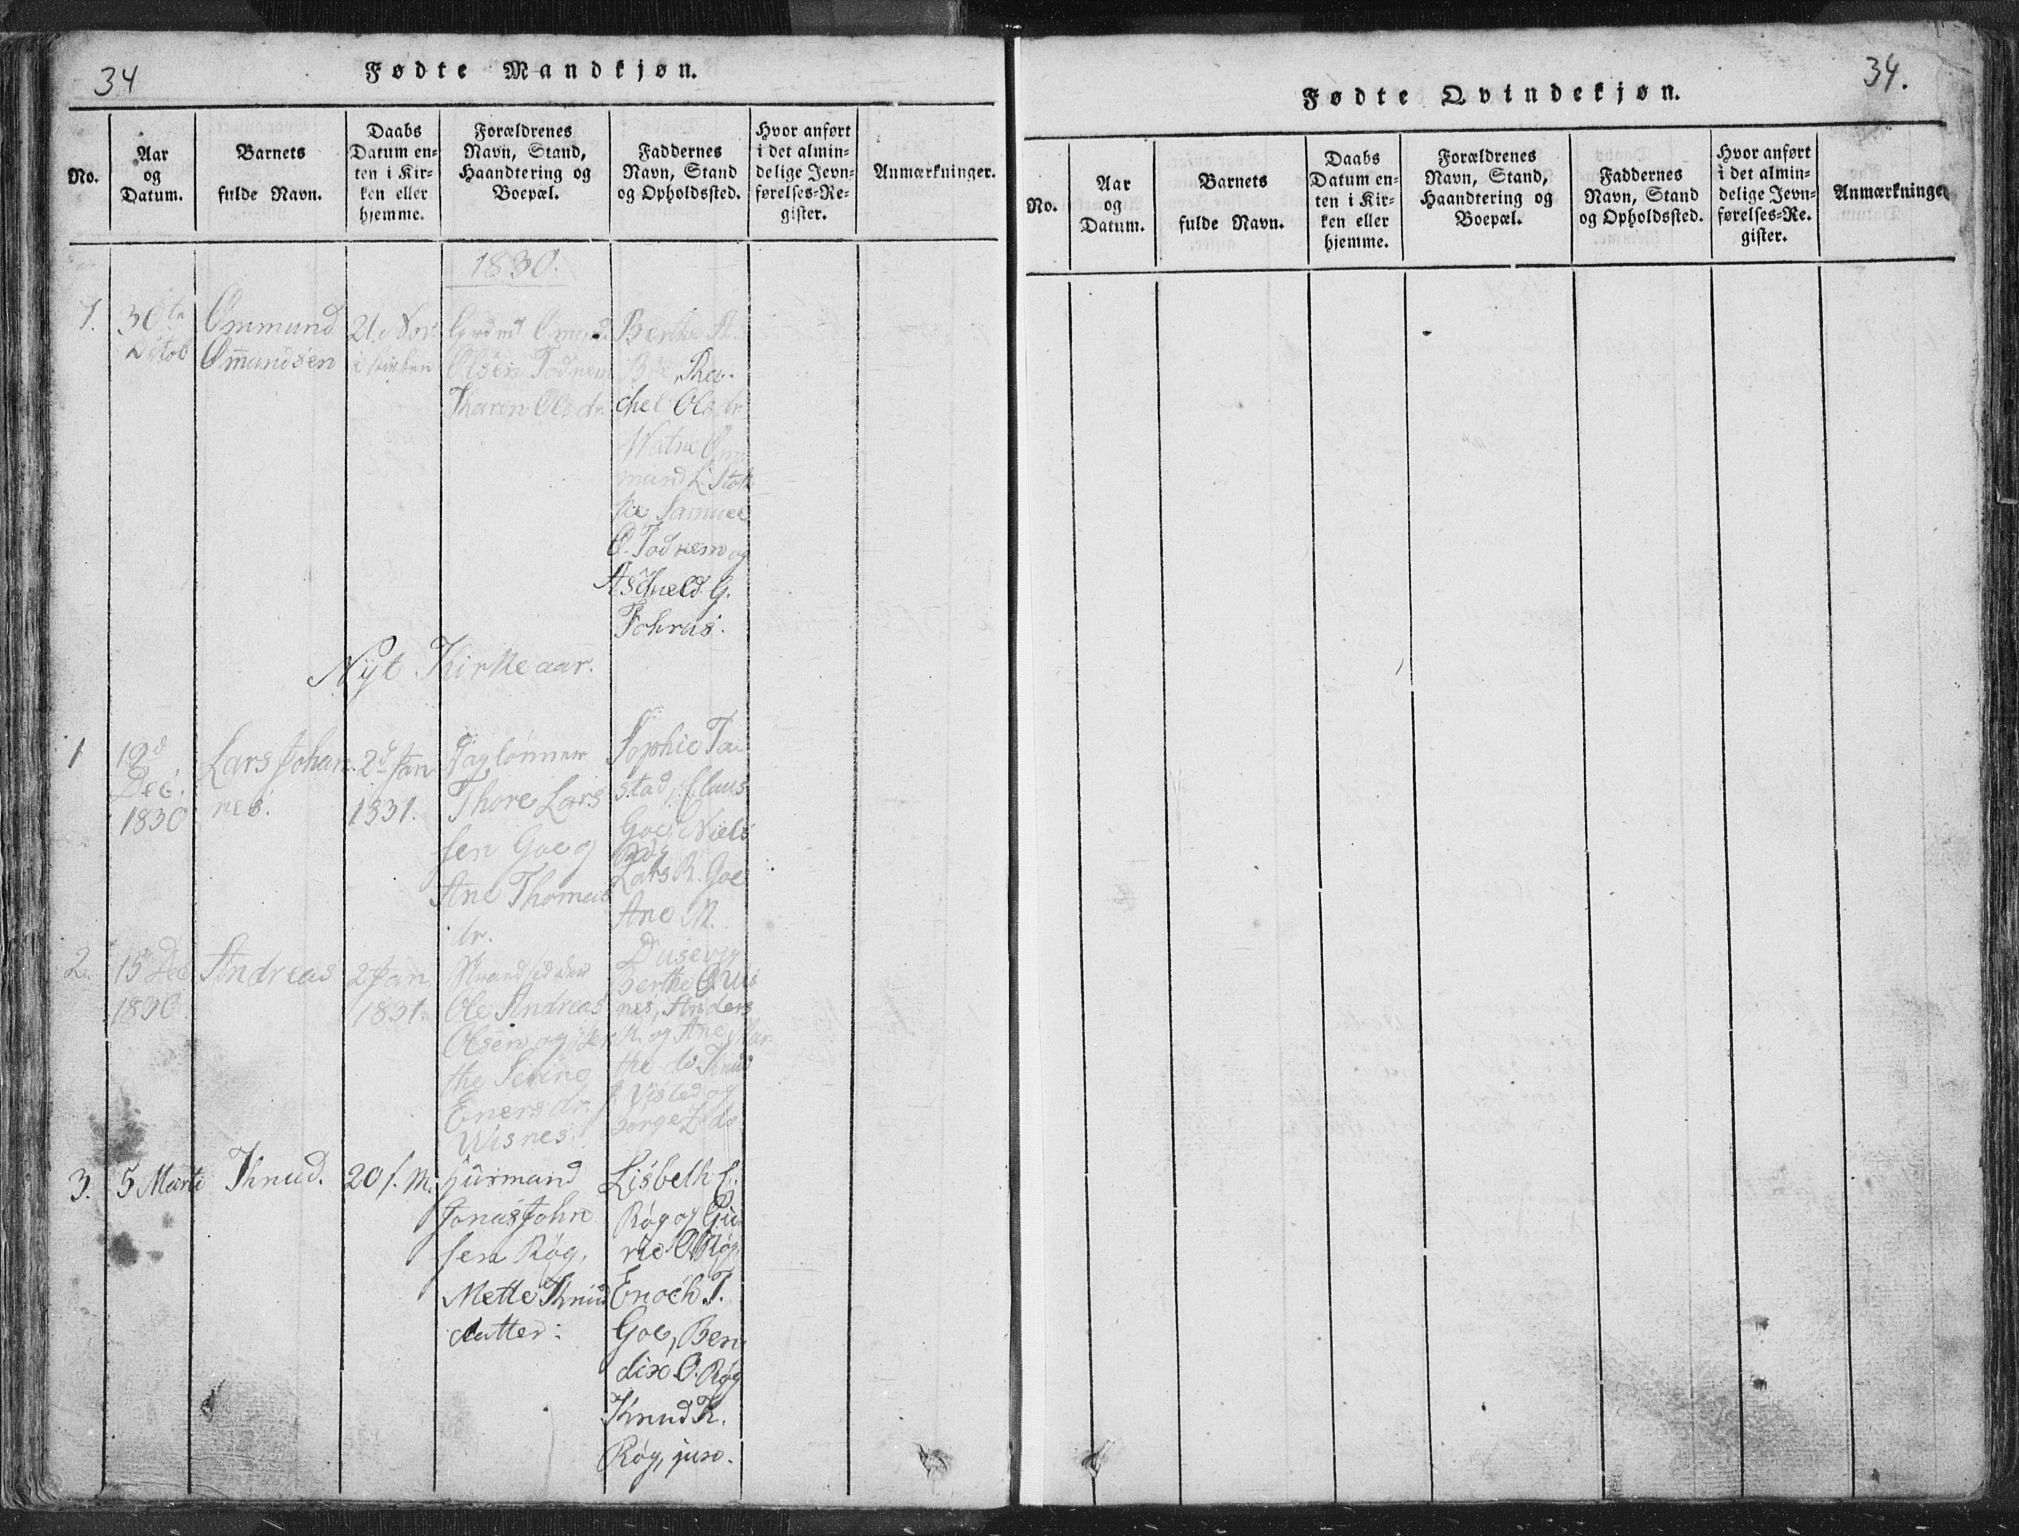 34
Fødte Mandkjøn.
No.
Aar
og
Datum.
Barnets
fulde Navn.
Daabs
Datum en-
ten i Kir-
ken eller
hjemme.
Forældrenes
Navn, Stand,
Haandtering og
Boepæl.
Faddernes
Navn, Stand
og Opholdssted.
Hvor anført
i det almin-
delige Jevn-
førelses-Re-
gister.
Anmærkninger.
1830.
7.
30te
Octob
Ommund
Omundsen
21. Nov.
i Kirken
Grdmd Omund
Olsen Todnem
Karen Olsdr.
Berthe A.
Bøe, Ra-
chel Olsdr
Watne Om
mund L. Stok
ke Samuel
O. Todnem og
Aschield G.
Fohrus.
Nyt Kirkeaar.
1
12d
Dec.
1830
Lars Johan
nes.
2d Jan
1831.
Daglønner
Thore Lars
sen Goe og
Ane Thomas
dr.
Sophie Ta-
stad, Claus
Goe, Niels
Lars R. Goe
Ane M.
Dusevig
2.
15 Dec
1830
Andreas
2 Jan.
1831.
Strandsidder
Ole Andreas
Olsen og
the Serine
Enersdr.
Wisnes.
Berthe O. Vis
nes, Anders
R. og Ane Mar
the do Knud
J. Visted og
Borge L. do
3.
5 Marti
Knud.
20 f. M.
Huurmand
Jonas John
sen Røg,
Mette Knud
datter:
Lisbeth E.
Røg og Gu-
rie O. Røg
Enoch T.
Goe, Ben
dix O. Røg
Knud K.
Røg, jun.
34.
Fødte Qvindekjøn.
No.
Aar
og
Datum.
Barnets
fulde Navn.
Daabs
Datum en-
ten i Kir-
ken eller
hjemme.
Forældrenes
Navn, Stand,
Haandtering og
Boepæl.
Faddernes
Navn, Stand
og Opholdssted.
Hvor anført
i det almin-
delige Jevn-
førelses-Re-
gister.
Anmærkninge